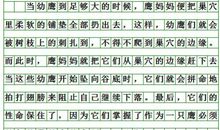 当幼鹰到足够大的时候，鹰妈妈便把巢穴
里柔软的铺垫全部扔出去，这样，幼鹰们就会
被树枝上的刺扎到，不得不爬到巢穴的边缘。
而此时，鹰妈妈就会把它们从巢穴的边缘赶下去
当这些幼鹰开始坠向谷底时，它们就会拼命地
拍打翅膀来阻止自己继续下落。最后，它们的
性命保住了，因为它们掌握了作为一只鹰必须